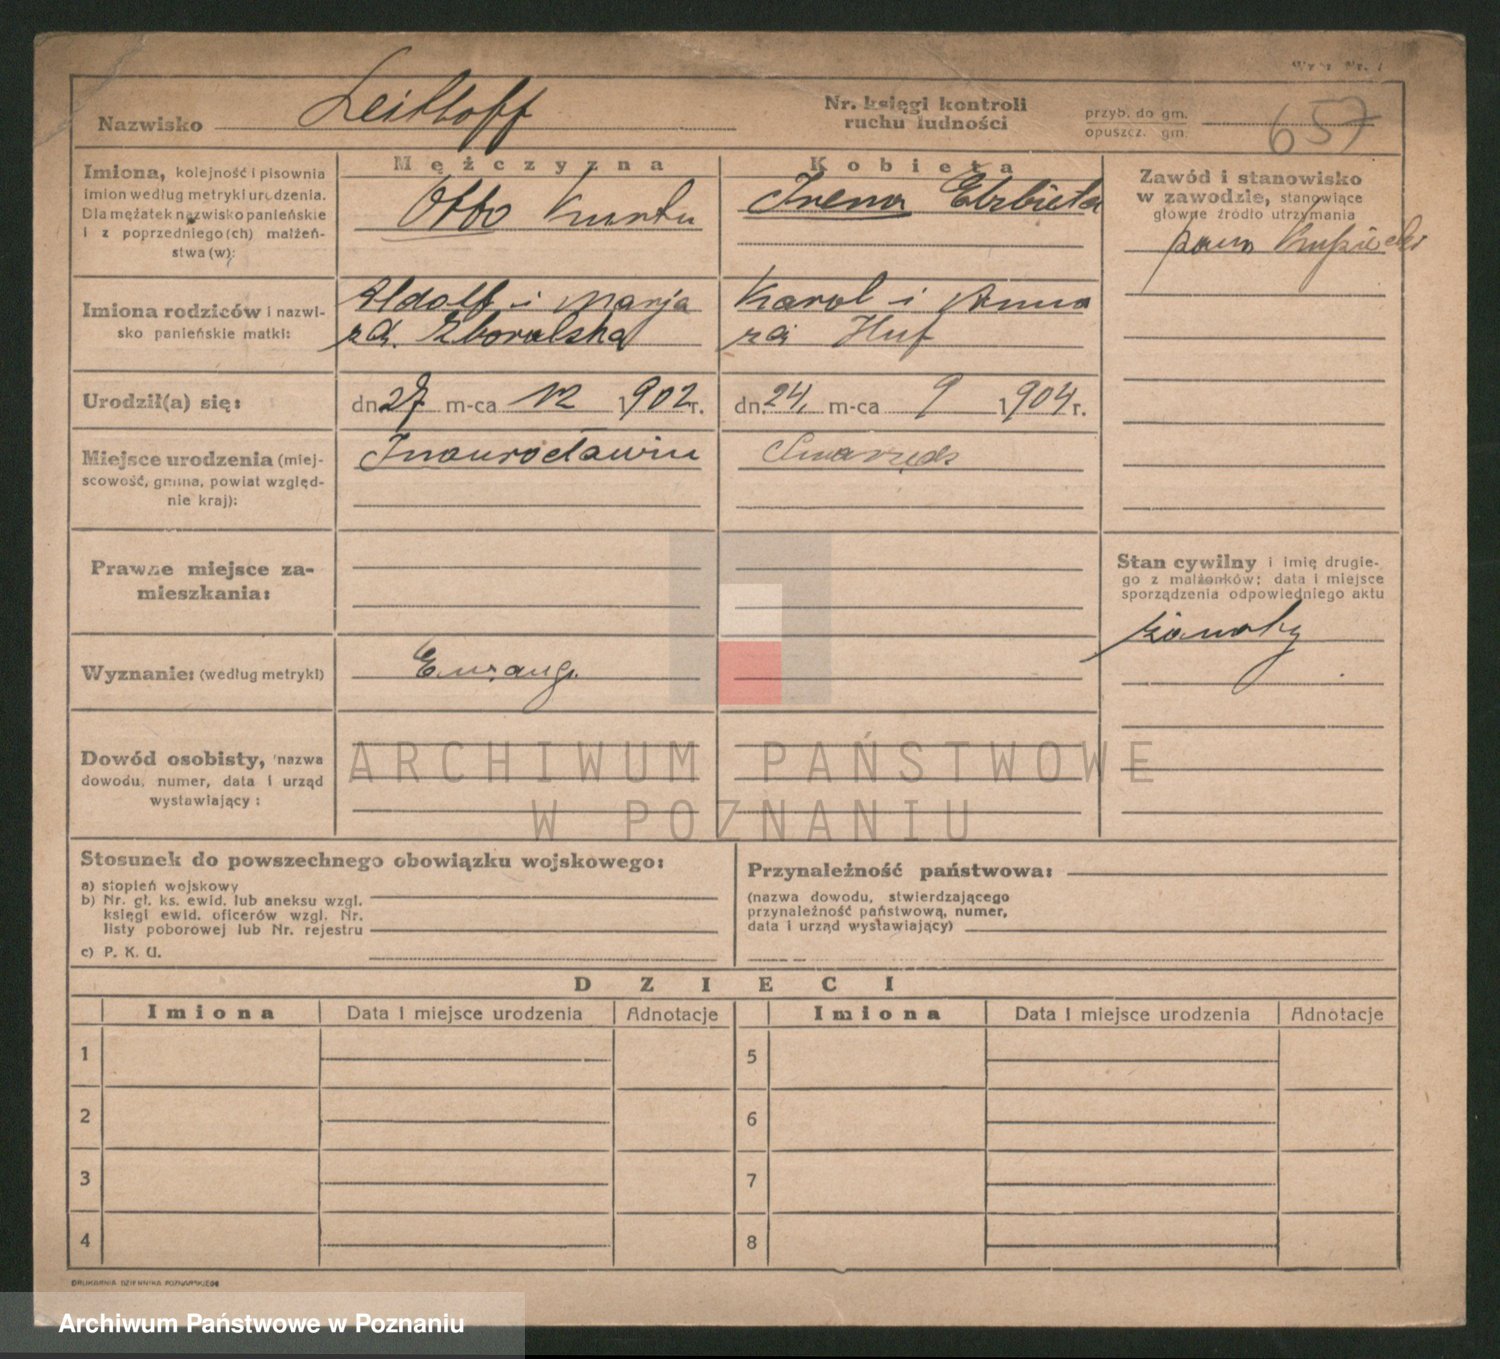 Nazwisko Leithoff
Nr. księgi kontroli
ruchu ludności
przyb. do gm.
opuszcz. gm.
657
Imiona, kolejność i pisownia
imion według metryki urodzenia.
Dla mężatek nazwisko panieńskie
i z poprzedniego(ch) małżeń-
stwa(w):
Mężczyzna
Otto Kurt
Kobieta
Irena Elżbieta
Zawód i stanowisko
w zawodzie, stanowiące
główne źródło utrzymania
Imiona rodziców i nazwi-
sko panieńskie matki:
Adolf i Marja
zd. Zboralska
Karol i Anna
zd Huf
Urodził(a) się:
dn. 27. m-ca 12 1902 r.
dn. 24. m-ca 9 1904 r.
Miejsce urodzenia (miej-
scowość, gmina, powiat względ-
nie kraj):
Inowrocławiu
Swarzędz
Prawne miejsce za-
mieszkania:
Stan cywilny i imię drugie-
go z małżonków; data i miejsce
sporządzenia odpowiedniego aktu
żonaty
Wyznanie: (według metryki)
Ewang.
Dowód osobisty, nazwa
dowodu, numer, data i urząd
wystawiający:
ARCHIWUM PAŃSTWOWE
W POZNANIU
Stosunek do powszechnego obowiązku wojskowego:
a) stopień wojskowy
b) Nr. gł. ks. ewid. lub aneksu wzgl.
księgi ewid. oficerów wzgl. Nr.
listy poborowej lub Nr. rejestru
c) P. K. U.
Przynależność państwowa:
(nazwa dowodu, stwierdzającego
przynależność państwową, numer,
data i urząd wystawiający)
DZIECI
Imiona Data i miejsce urodzenia Adnotacje Imiona Data i miejsce urodzenia Adnotacje
1 5
2 6
3 7
4 8
DRUKARNIA DZIENNIKA POZNAŃSKIEGO
Archiwum Państwowe w Poznaniu